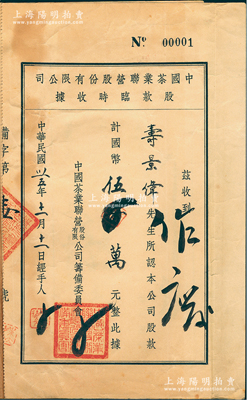 上海陽明拍賣
Nº 00001
中國茶業聯營股份有限公司
股款臨時收據
茲收到
壽景偉先生所認本公司股款
作廢
計國幣伍萬元整此據
中國茶業聯營股份有限公司籌備委員會
中華民國卅五年十一月十二日經手人
備字第
號
上海陽明拍賣